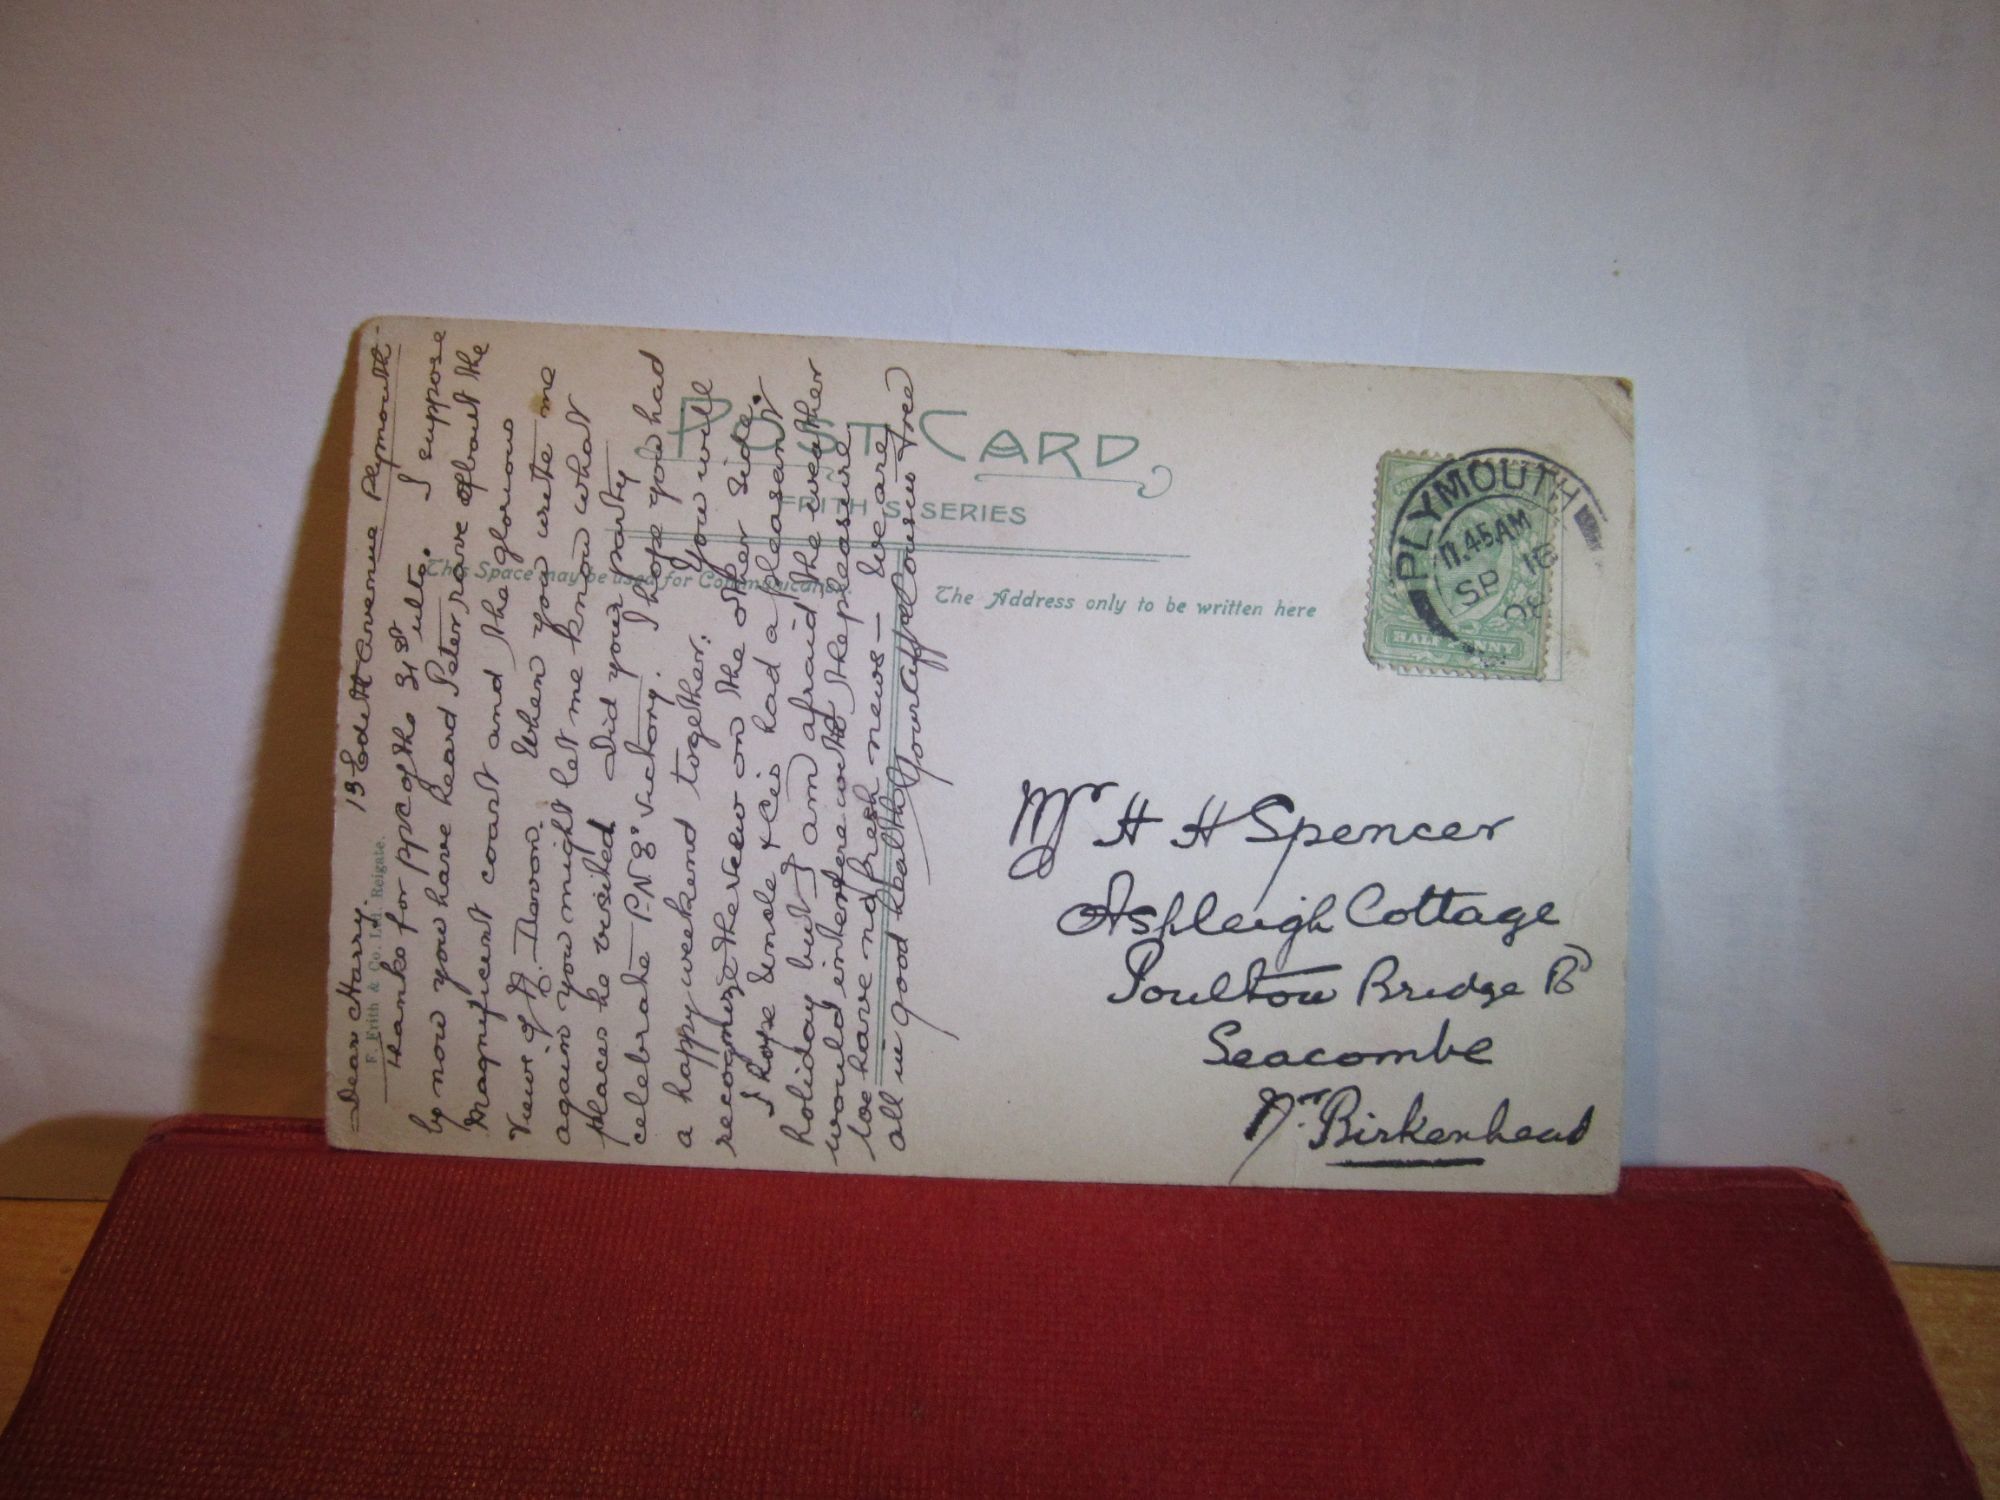 13 Edith Avenue Plymouth
Dear Harry.
thanks for ppc of the 31st ulto. I suppose
by now you have heard Peter rave about the
Magnificent coast and the glorious
Views of N. Devon. When you write me
again you might let me know what
places he visited. Did your party
celebrate P.N.8s victory. I hope you had
a happy weekend together. You will
recognize the view on the other side.
I hope Uncle & Cis had a pleasant
holiday but I am afraid the weather
would interfere with the pleasure
We have no fresh news – We are
all in good health
Your Affte Cousin Fred
F. Frith & Co. Ltd. Reigate.
POST CARD
FRITH'S SERIES
This Space may be used for Communication.
The Address only to be written here
PLYMOUTH
11.45 AM
SP 16
08
HALF PENNY
Mr H H Spencer
Ashleigh Cottage
Poulton Bridge Rd
Seacombe
Nr Birkenhead